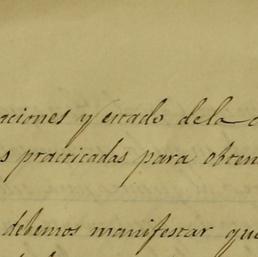 aciones y estado de la c
s practicadas para obten
debemos manifestar que